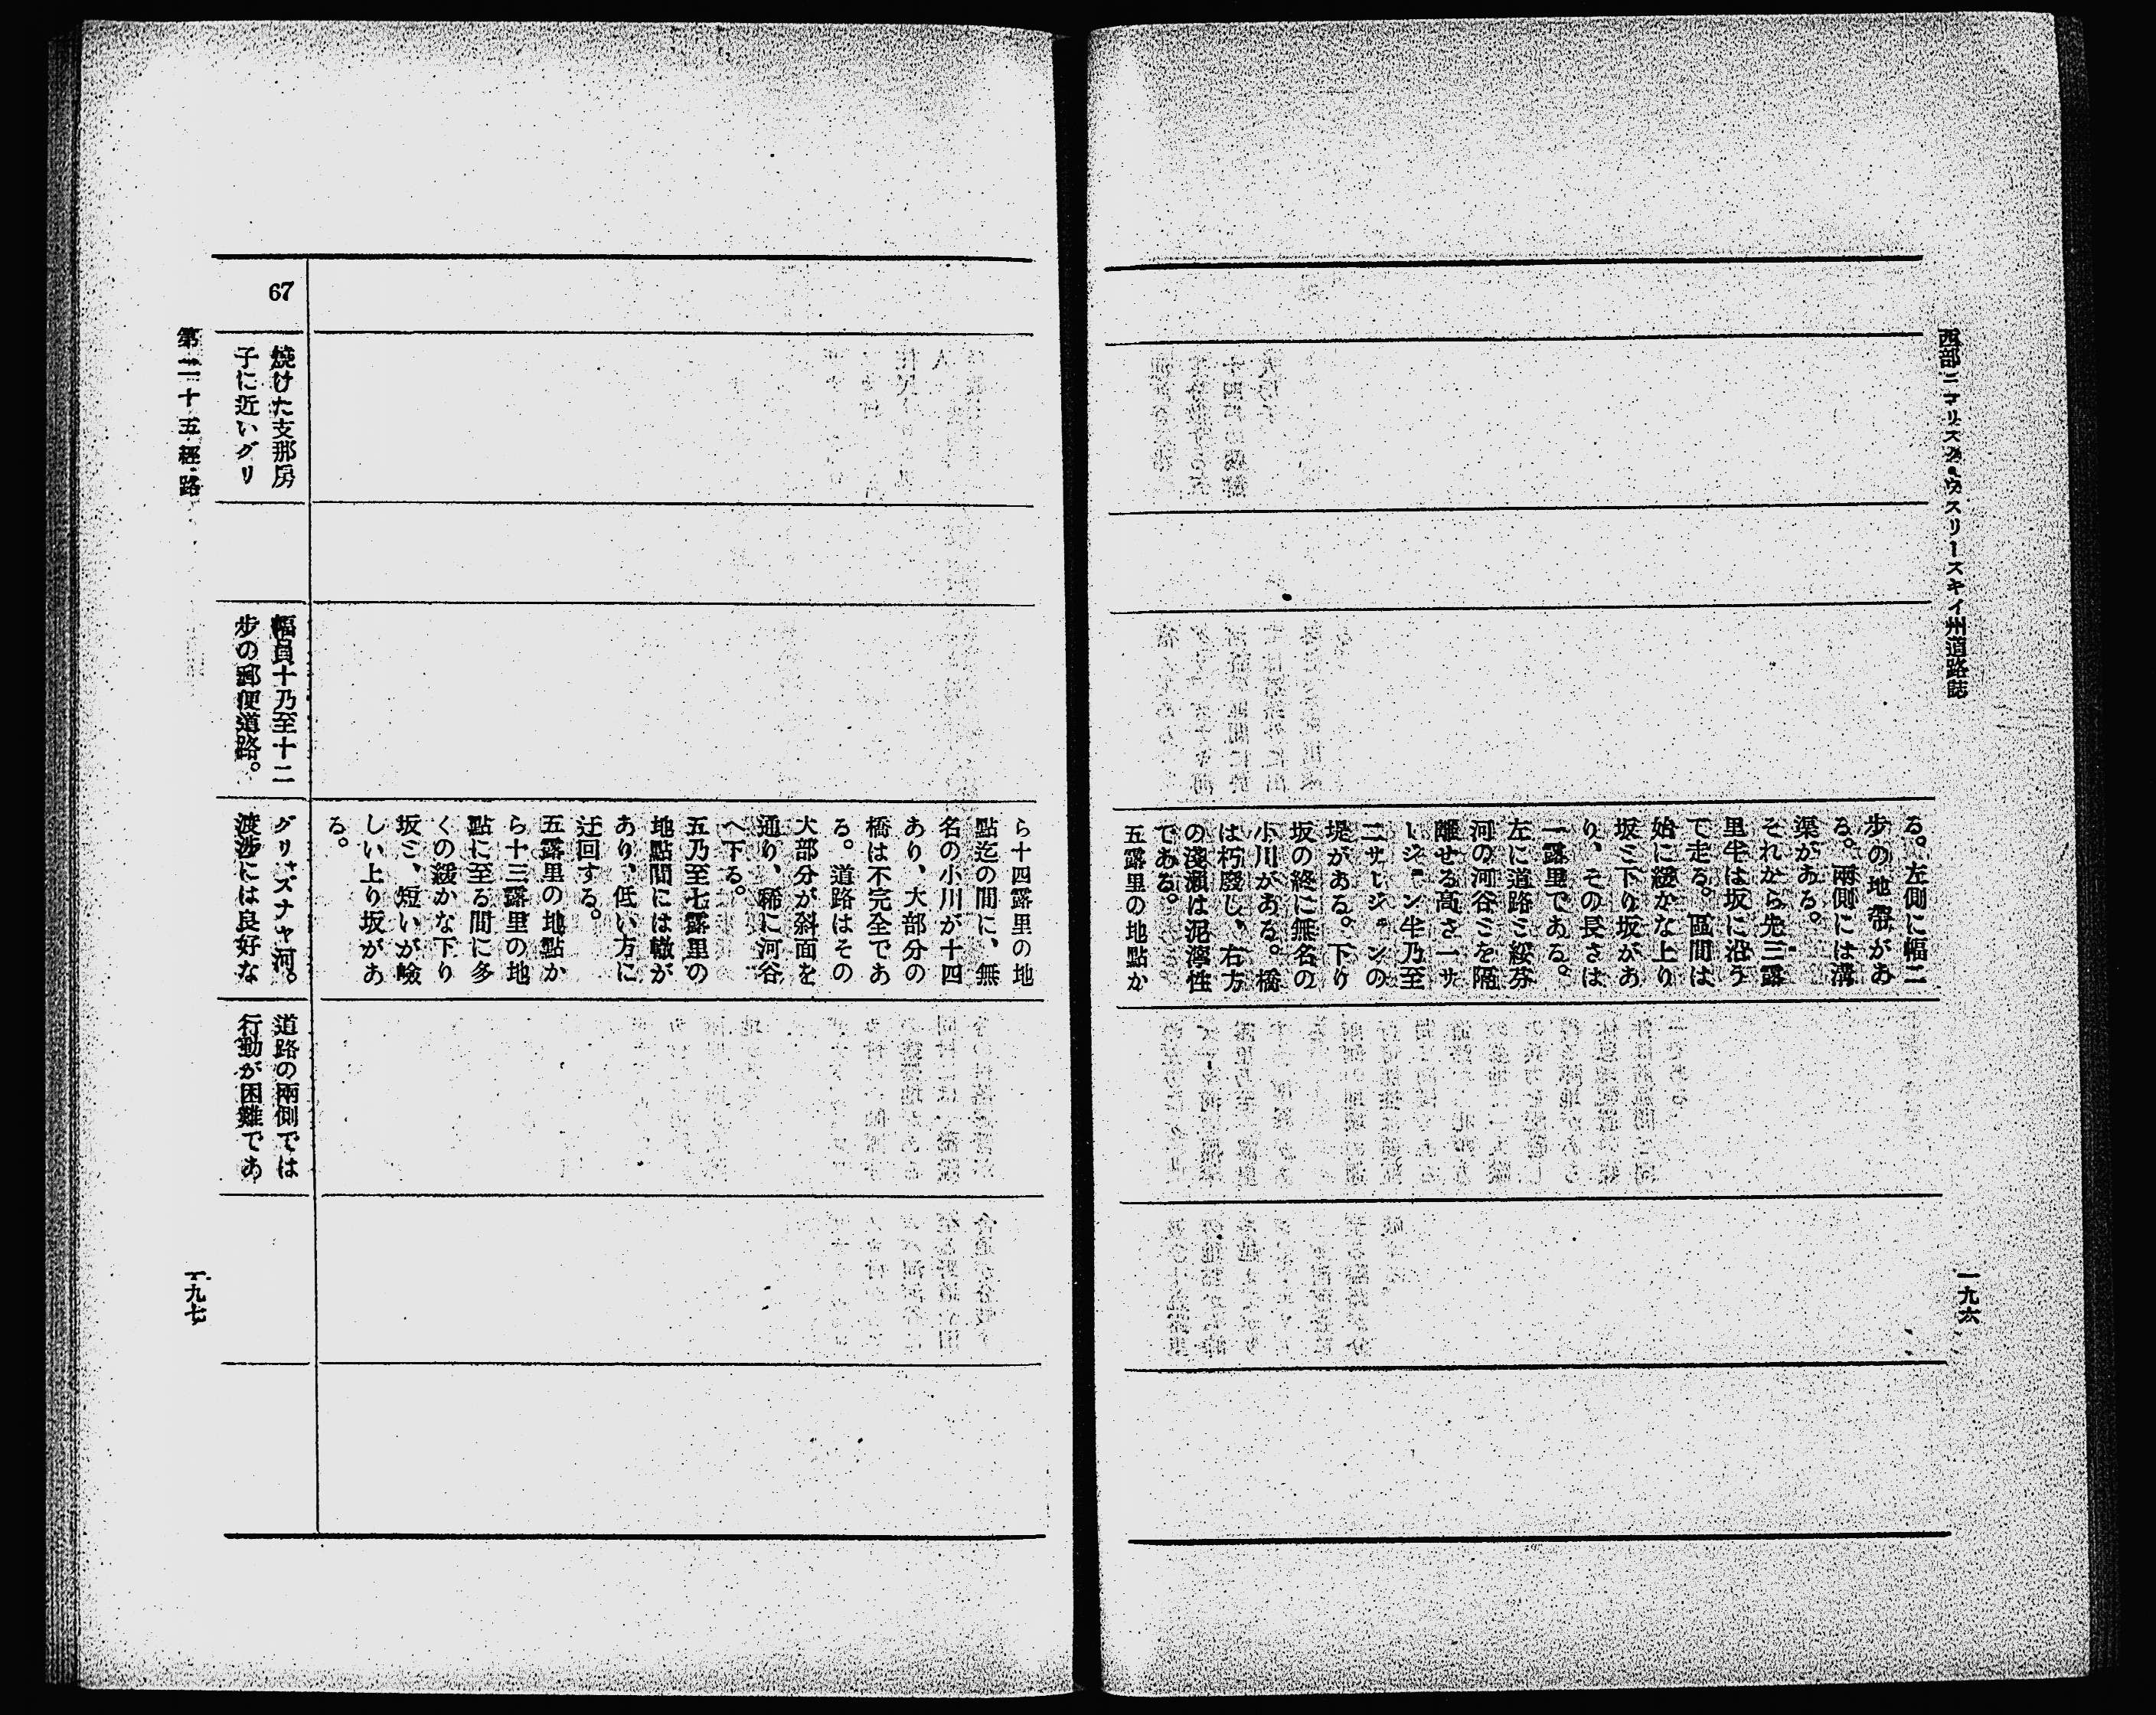 西部ニコリスク・ウスリースキイ州道路誌
一九六
る。左側に幅二
步の地帶があ
る。兩側には溝
渠がある。
それから先三露
里半は坂に沿う
て走る。區間は
始に緩かな上り
坂ミ下り坂があ
り、その長さは
一露里である。
左に道路ミ綏芬
河の河谷ミを隔
離せる高さ一サ
ージェン半乃至
二サージェンの
堤がある。下り
坂の終に無名の
小川がある。橋
は朽廢し、右方
の淺瀨は泥濘性
である。
五露里の地點か
ら十四露里の地
點迄の間に、無
名の小川が十四
あり、大部分の
橋は不完全であ
る。道路はその
大部分が斜面を
通り、稀に河谷
へ下る。
五乃至七露里の
地點間には轍が
あり、低い方に
迂回する。
五露里の地點か
ら十三露里の地
點に至る間に多
くの緩かな下り
坂ミ、短いが嶮
しい上り坂があ
る。
67
燒けた支那房
子に近いグリ
幅員十乃至十二
步の郵便道路。
グリズナヤ河。
渡涉には良好な
道路の兩側では
行動が困難であ
第二十五經路
一九七